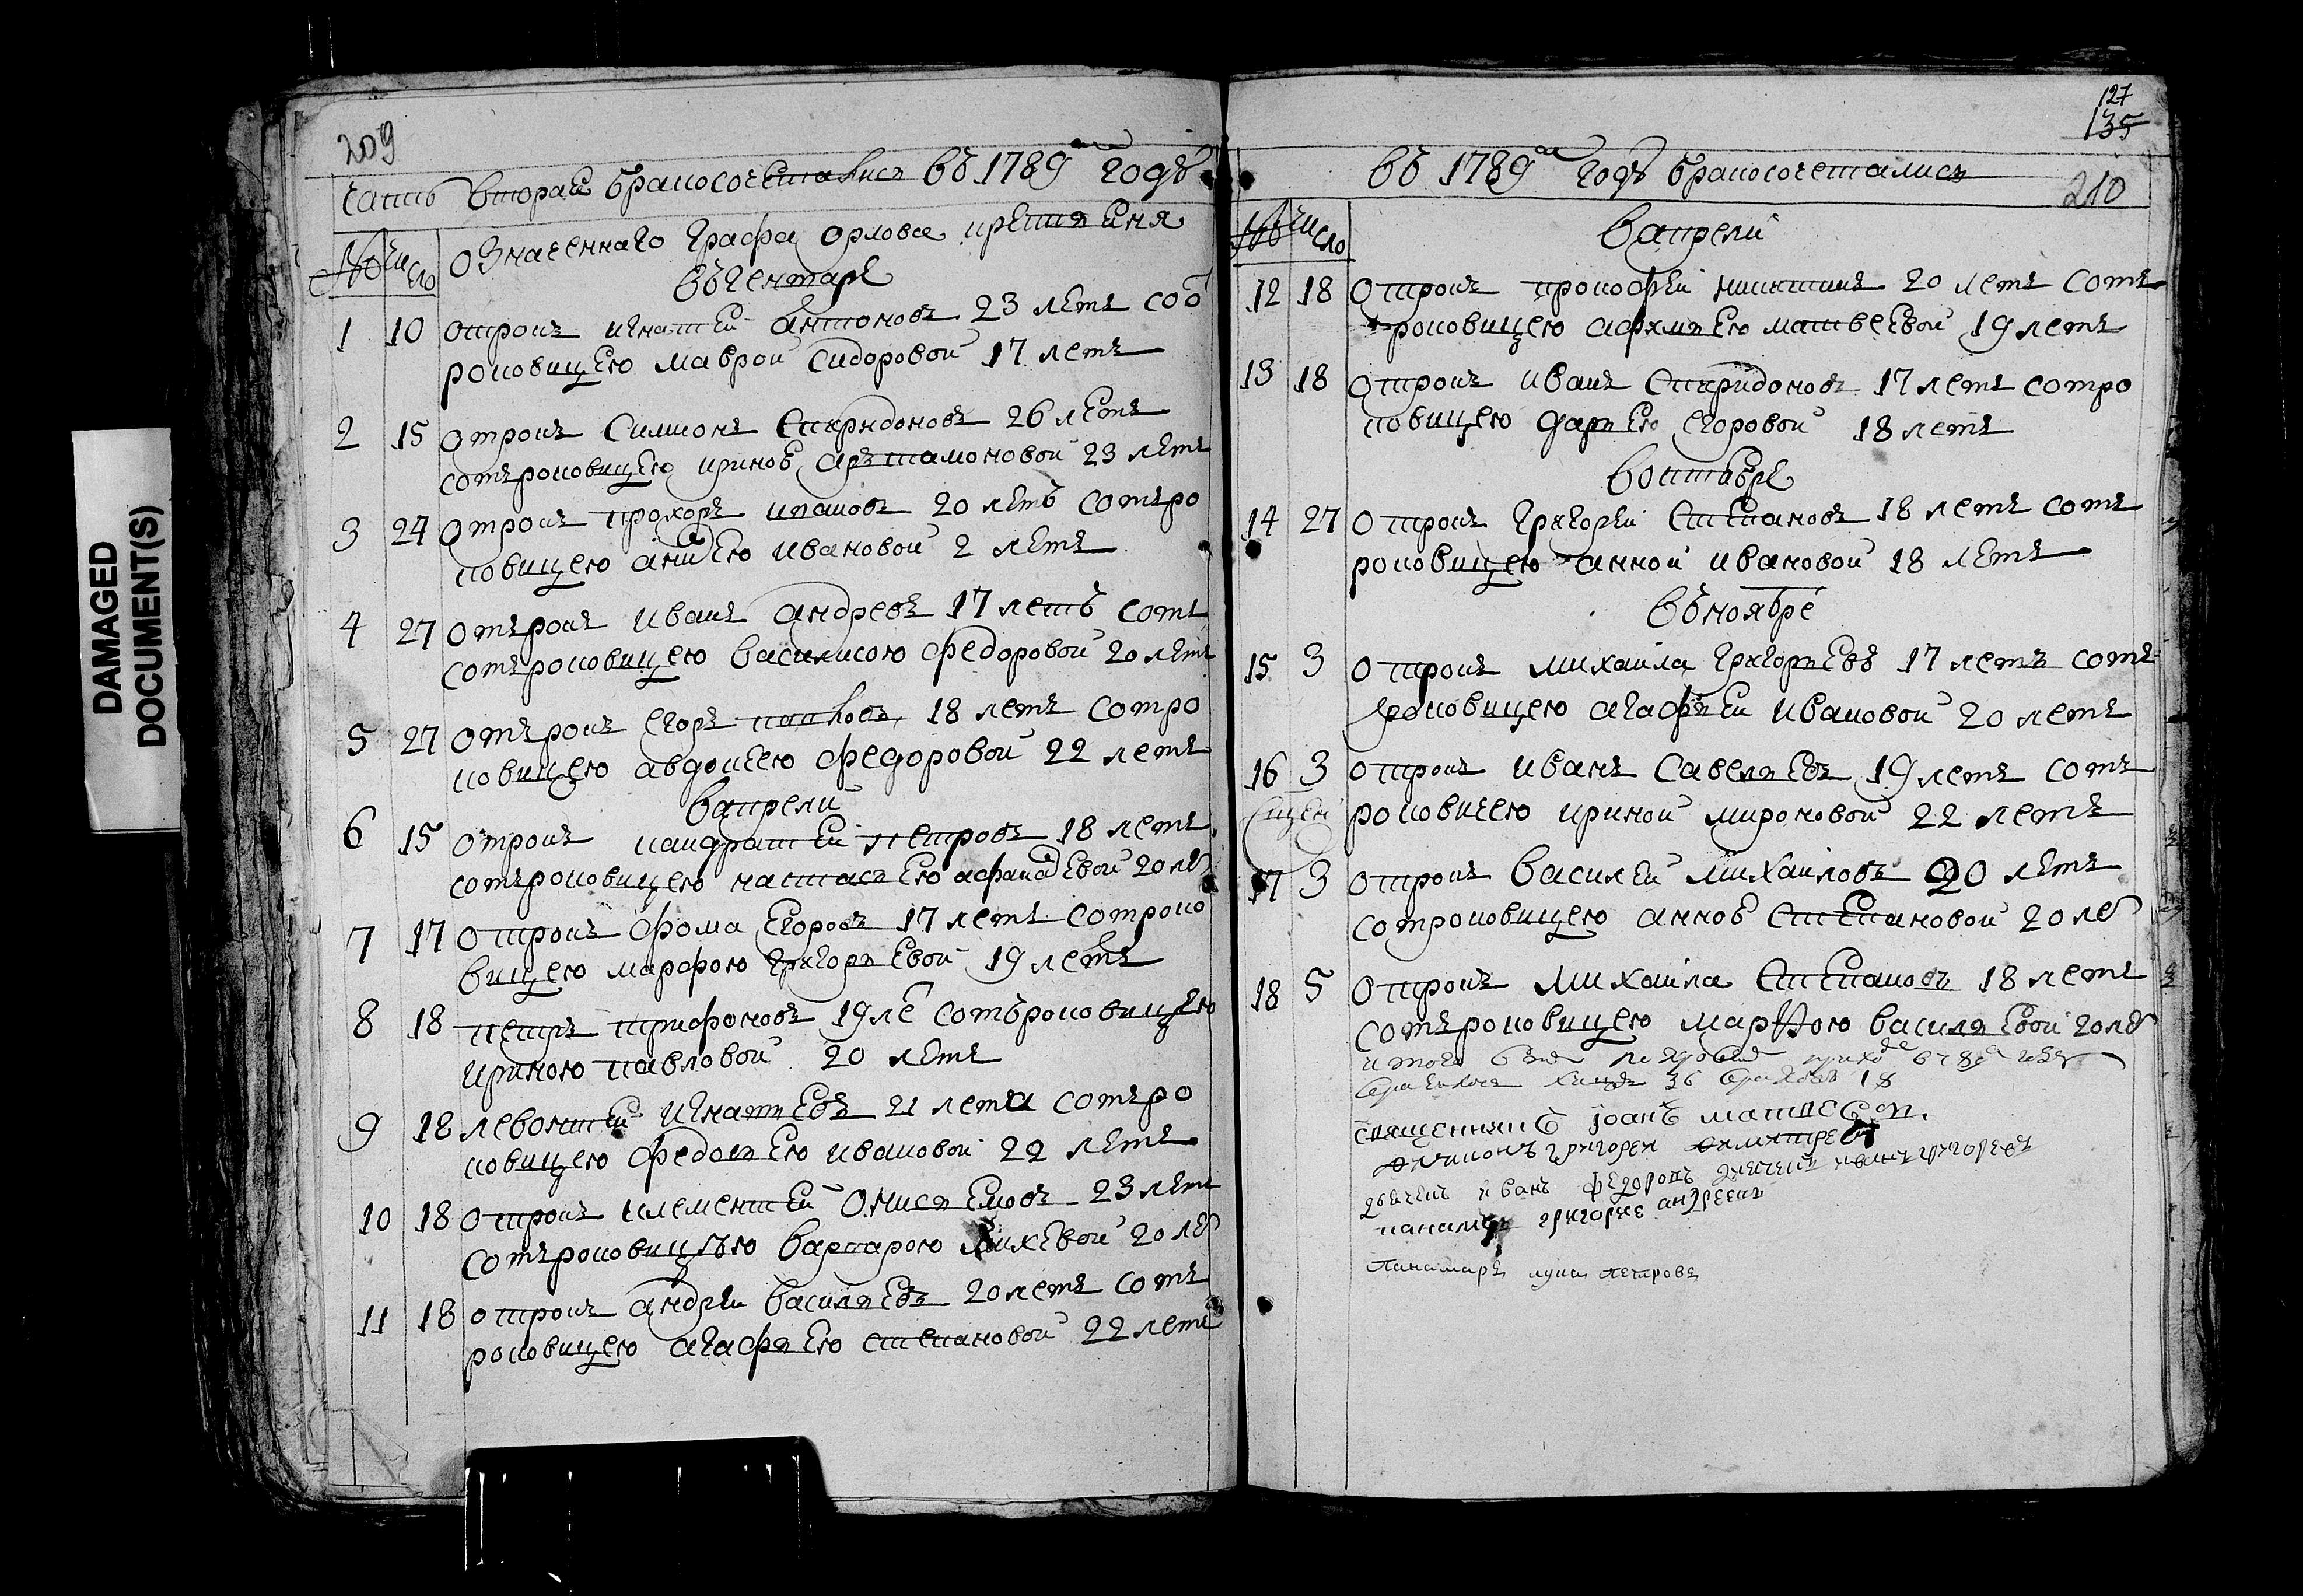 209
часть вторая бракосочетались въ 1789м годѣ
№ число
означеннаго графа орлова крестьяня
въ генваре
1 10 отрокъ игнатей антоновъ 23 летъ соо
роковицею маврой сидоровой 17 летъ
2 15 отрокъ Симионъ Спиридоновъ 26 летъ
сотъроковицею ириноѣ аръшамоновой 23 летъ
3 24 отрокъ прохоръ ипаковъ 20 летъ сотъро
ковицею Ивановой 2 летъ
4 27 отърокъ иванъ андревъ 17 летъ сотъ
сотъроковицею василисою федоровой 20 летъ
5 27 отърокъ егоръ 18 летъ сотро
ковицею авдокею федоровой 22 летъ
вапрели
6 15 отрокъ кандратей петровъ 18 летъ
сотъроковицею настасьею афанасьевой 20 ле
7 17 отрокъ фома Егоровъ 17 летъ сотроко
вицею марфою григорьевой 19 летъ
8 18 петръ трифоновъ 19 ле сотъроковицею
ириною павловой 20 летъ
9 18 левонтей игнатьевъ 21 лета сотъро
ковицею федосьею ивановой 22 летъ
10 18 отрокъ клементей Онисьемовъ 23 летъ
сотъроковицъю варварою михевой 20 ле
11 18 отрокъ андрей васильевъ 20 летъ сотъ
роковицею агафьею степановой 22 летъ
127
135
въ 1789м годѣ бракосочеталися
210
№ число
вапрели
12 18 отрокъ прокофей никитинъ 20 летъ сотъ
роковицею афимьею матвеевой 19 летъ
13 18 отрокъ иванъ Спиридоновъ 17 летъ сотро
ковицею дарьею егоровой 18 летъ
воктебре
14 27 отрокъ григорей Степановъ 18 летъ сотъ
роковицею анной ивановой 18 летъ
въноябре
15 3 отрокъ михаила григорьевъ 17 летъ сотъ
роковицею агафьеи ивановой 20 летъ
16 3 отрокъ иванъ савельевъ 19 летъ сотъ
роковичею ириной мироновой 22 летъ
17 3 отрокъ василей михаиловъ 20 летъ
сотроковицею анноѣ степановой 20 ле
18 5 отрокъ михаила Степановъ 18 летъ
сотъроковицею марфою васильевой 20 ле
итого
36 браковъ 18
священникъ іоанъ матвеевъ
григорей димитреевъ
дьячекъ иванъ федоровъ дьячекъ иванъ григоревъ
панамарь григорие андреевъ
панамарь лука петровъ
DAMAGED
DOCUMENT(S)